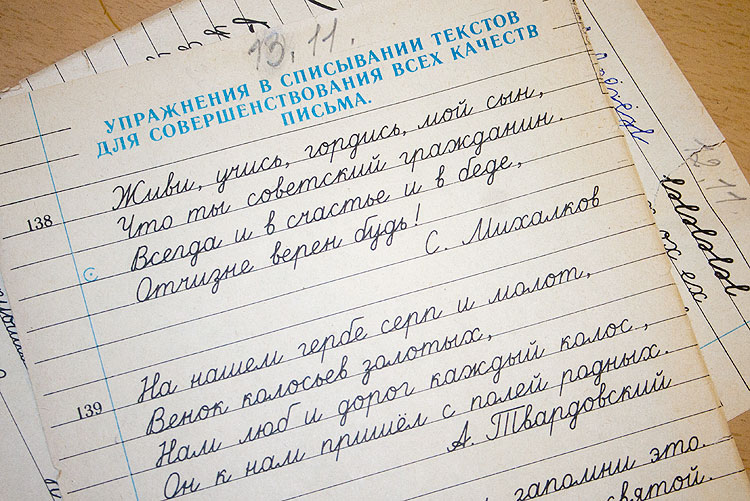 13.11.
УПРАЖНЕНИЯ В СПИСЫВАНИИ ТЕКСТОВ
ДЛЯ СОВЕРШЕНСТВОВАНИЯ ВСЕХ КАЧЕСТВ
ПИСЬМА.
138
Живи, учись, гордись, мой сын,
Что ты советский гражданин.
Всегда и в счастье и в беде,
Отчизне верен будь!
С. Михалков
139
На нашем гербе серп и молот,
Венок колосьев золотых,
Нам люб и дорог каждый колос,
Он к нам пришёл с полей родных.
А. Твардовский
запомни это.
святой.
12.11
ох ех